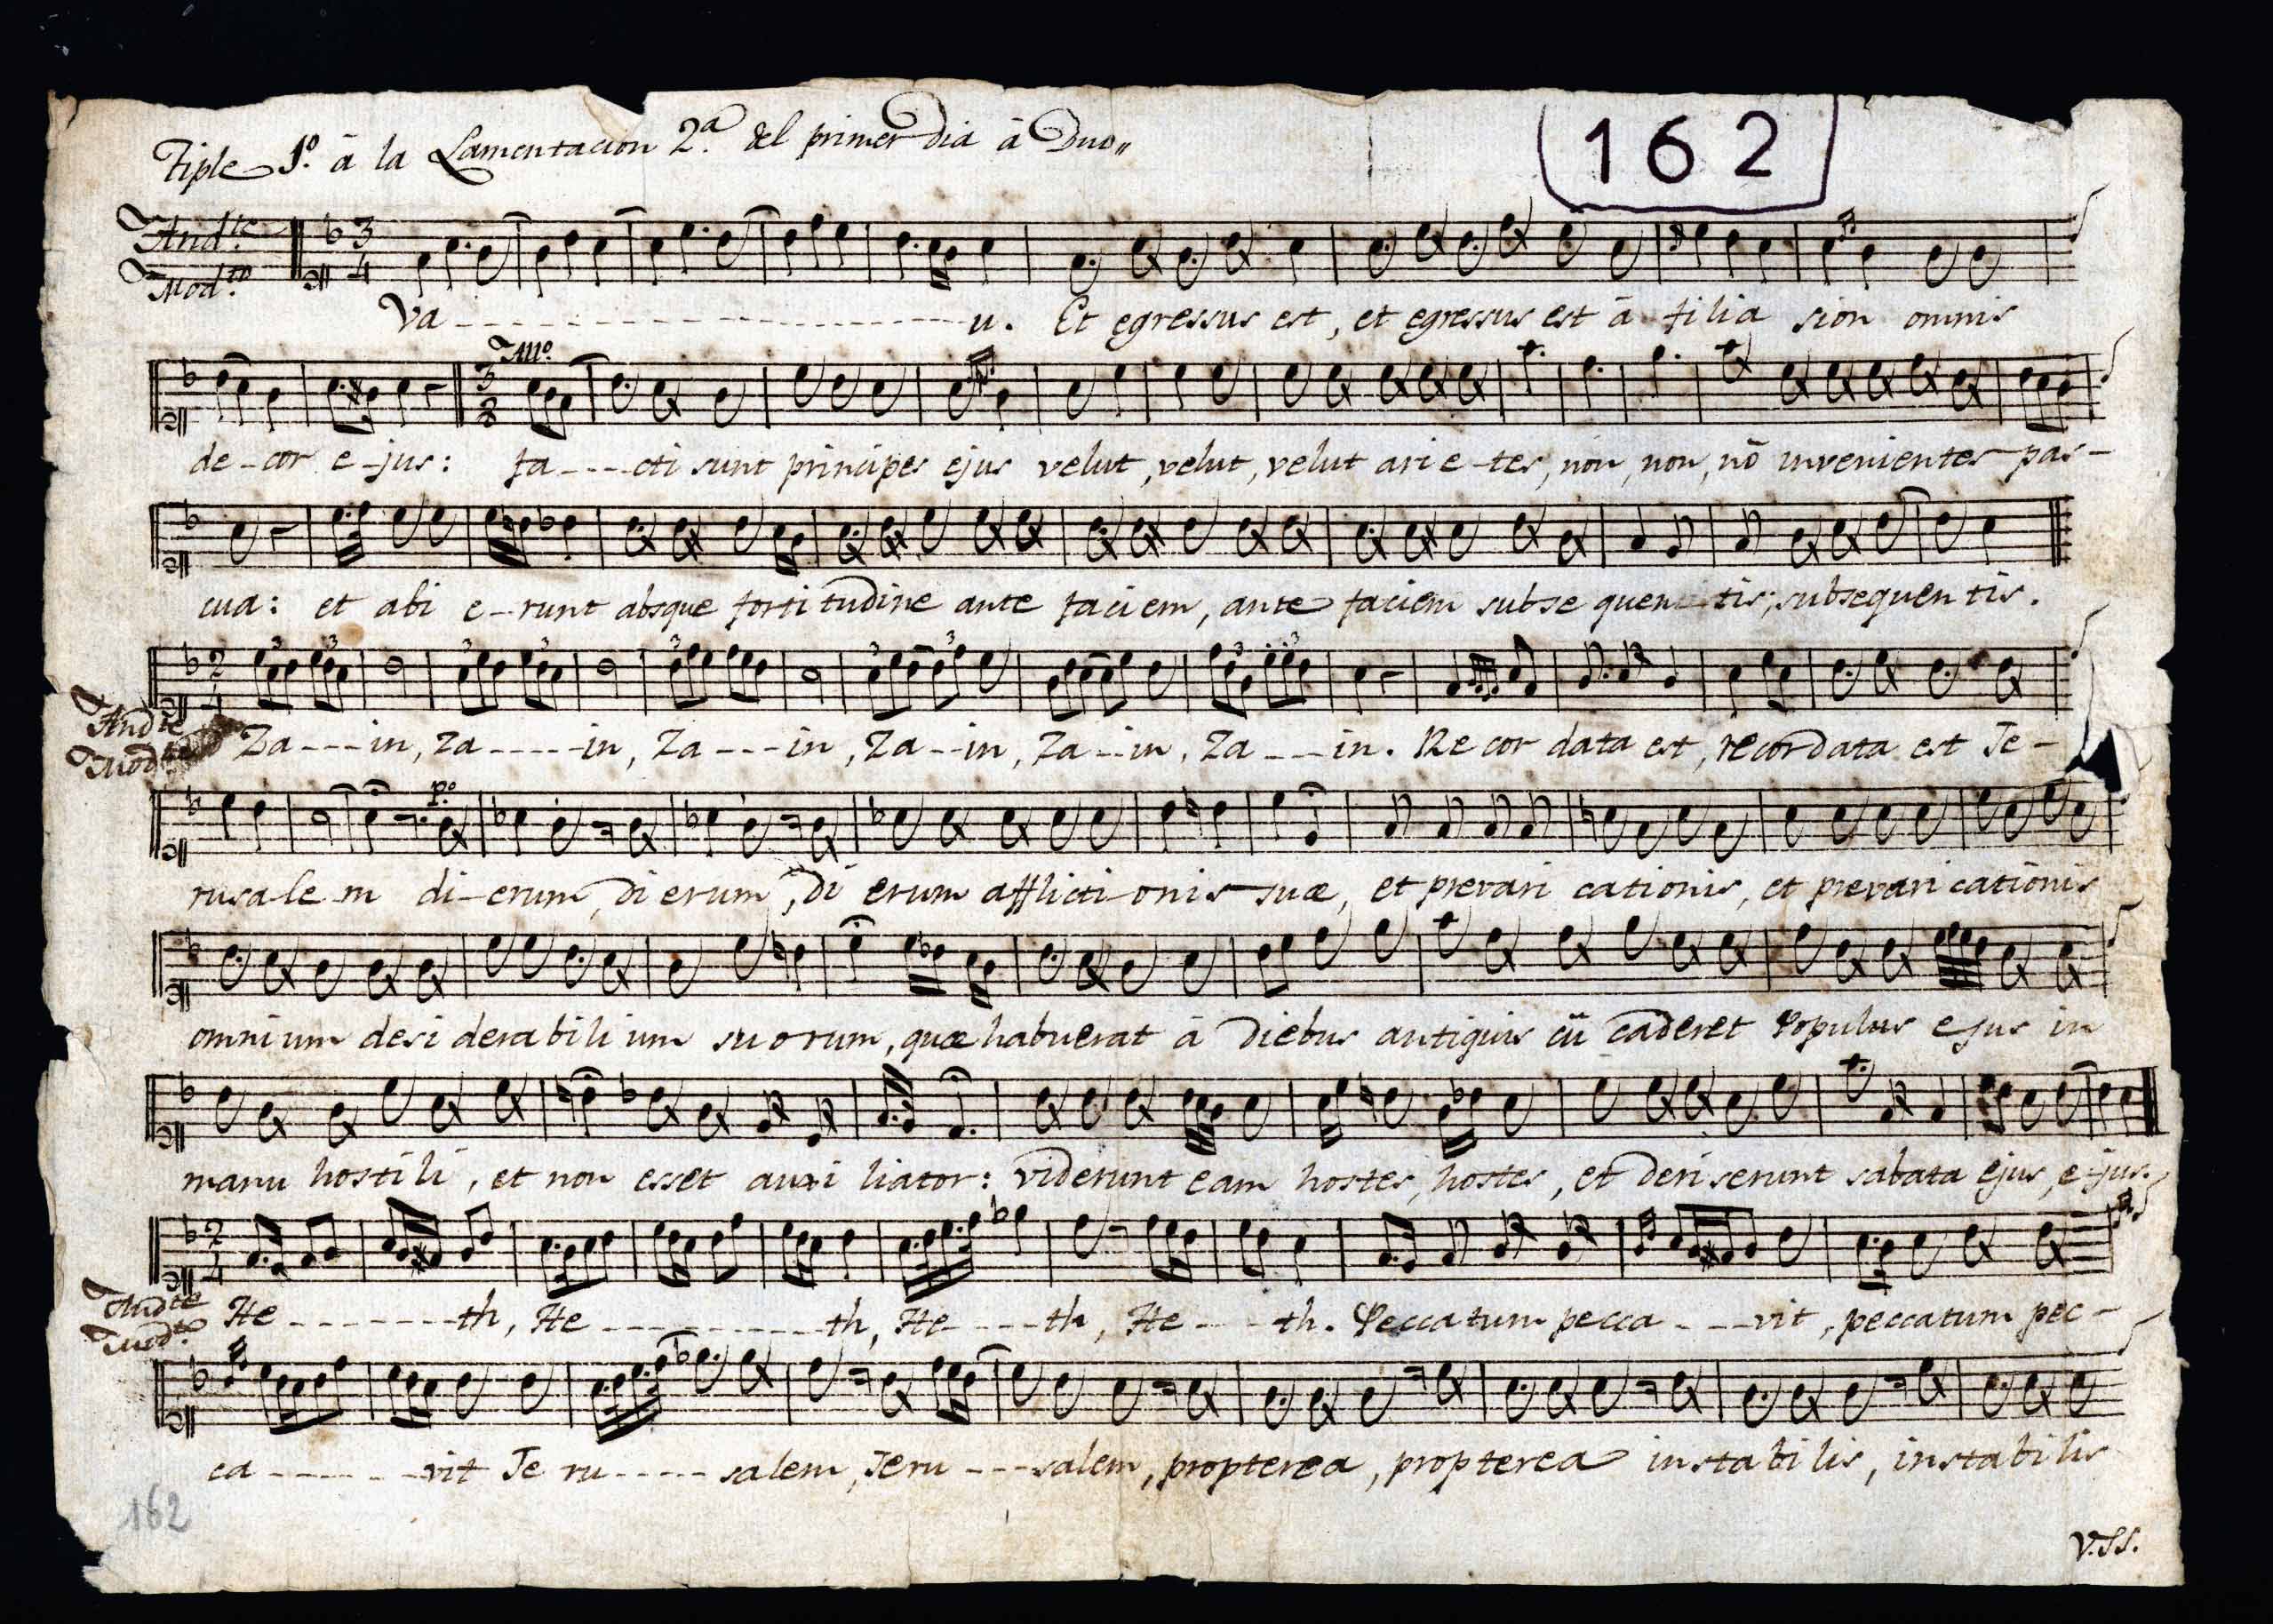 Tiple 1º. â la Lamentacion 2ª. del primer dia â Duo,,
162
Andte. Modto. 3 4
Va - - - u. Et egressus est, et egressus est â filia sion omnis
Allo. 3 8
de - cor e - jus: fa - - - cti sunt principes ejus velut, velut, velut ari e - tes, non, non, nõ invenientes pas -
cua: et abi e - runt absque forti tudine ante faciem, ante faciem subse quen - tis; subsequen tis.
2 4
3 3 3 3 3 3 3 3
Andte Modto Za - - - in, Za - - - - in, Za - - - in, Za - - in, Za - - in, Za - - - in. Re cor data est, recordata est Je -
po.
rusa - le - m di - erum, di erum, di erum afflicti - onis suæ, et prevari cationis, et prevari cationis
omni um desi derabi li um su o rum, quæ habuerat â diebus antiquis cũ caderet Populus ejus in
manu hosti li, et non esset auxi liator: viderunt eam hostes, hostes, et deri serunt sabata ejus, e - jus.
2 4
Andte Modto. He - - - - - - - th, He - - - - - - - - th, He - - - - th, He - - - th. Pecca tum pecca - - - vit, peccatum pec -
ca - - - - - - vit Je ru - - - - - salem, Jeru - - - salem, propterea, propterea instabi lis, instabi lis
162
V.SS.